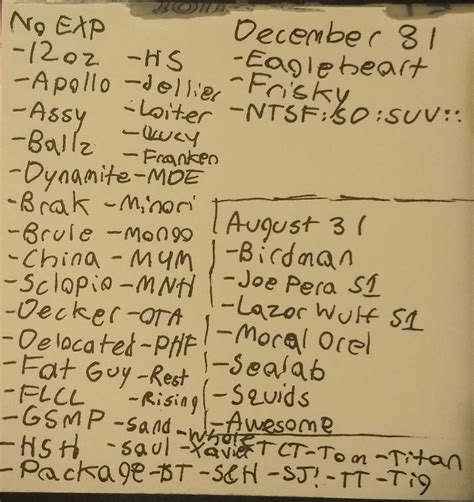 No EXP
-12oz -HS
-Apollo -Jellies
-Assy -Loiter
-Ballz -Lucy
-Franken
-Dynamite -MDE
-Brak -Minori
-Brule -Mongo
-China -MYM
-Sclopio -MNH
-Decker -OTA
-Delocated -PHF
-Fat Guy -Rest
-FLCL -Rising
-GSMP -Sand -Whole
-HSH -Saul -Xavier TCT -Tom -Titan
-Package -BT -SCH -SJ! -TT -Tig
December 31
-Eagleheart
-Frisky
-NTSF:SD:SUV::
August 31
-Birdman
-Joe Pera S1
-Lazor Wulf S1
-Moral Orel
-Sealab
-Squids
-Awesome